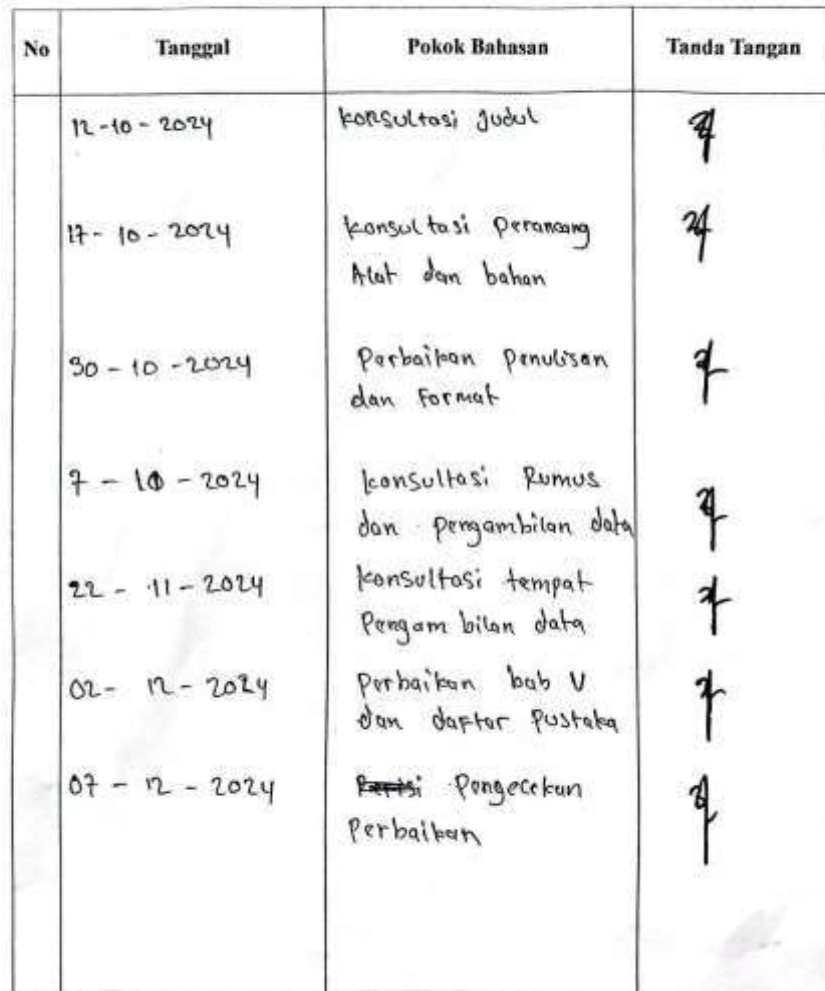 No Tanggal Pokok Bahasan Tanda Tangan
12-10-2024 konsultasi Judul
17-10-2024 konsultasi Perancang
Alat dan bahan
30-10-2024 Perbaikan Penulisan
dan Format
7-10-2024 konsultasi Rumus
dan pengambilan data
22-11-2024 konsultasi tempat
Pengambilan data
02-12-2024 Perbaikan bab V
dan daftar Pustaka
07-12-2024 Pengecekan
Perbaikan